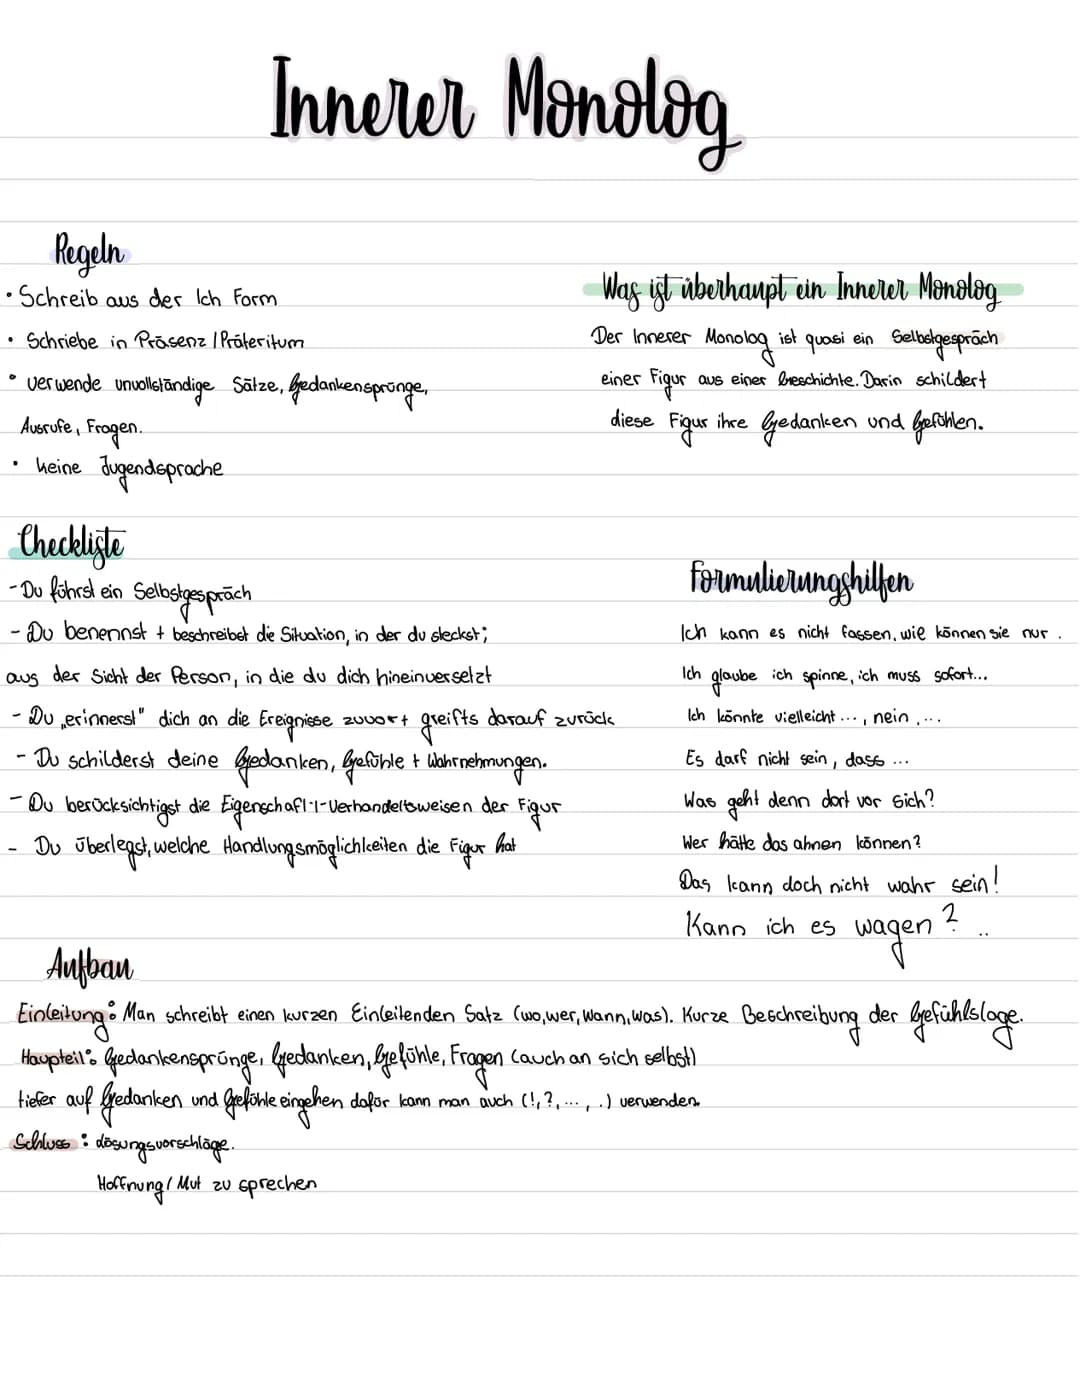 Innerer Monolog
Regeln
• Schreib aus der Ich Form
• Schriebe in Präsenz / Präteritum
• verwende unvollständige Sätze, Gedankensprünge,
Ausrufe, Fragen.
• keine Jugendsprache
Was ist überhaupt ein Innerer Monolog
Der Innerer Monolog ist quasi ein Selbstgespräch
einer Figur aus einer Geschichte. Darin schildert
diese Figur ihre Gedanken und Gefühlen.
Checkliste
- Du führst ein Selbstgespräch
- Du benennst + beschreibst die Situation, in der du steckst;
aus der Sicht der Person, in die du dich hineinversetzt
- Du „erinnerst" dich an die Ereignisse zuvor + greifts darauf zurück
- Du schilderst deine Gedanken, Gefühle + Wahrnehmungen.
- Du berücksichtigst die Eigenschaft-/-Verhandeltsweisen der Figur
- Du überlegst, welche Handlungsmöglichkeiten die Figur hat
Formulierungshilfen
Ich kann es nicht fassen, wie können sie nur .
Ich glaube ich spinne, ich muss sofort...
Ich könnte vielleicht ..., nein, ...
Es darf nicht sein, dass ...
Was geht denn dort vor sich?
Wer hätte das ahnen können?
Das kann doch nicht wahr sein!
Kann ich es wagen? ..
Aufbau
Einleitung: Man schreibt einen kurzen Einleitenden Satz (wo, wer, wann, was). Kurze Beschreibung der Gefühlslage.
Haupteil: Gedankensprünge, Gedanken, Gefühle, Fragen (auch an sich selbst)
tiefer auf Gedanken und Gefühle eingehen dafür kann man auch (!, ?, ... , .) verwenden.
Schluss: Lösungsvorschläge.
Hoffnung / Mut zu sprechen